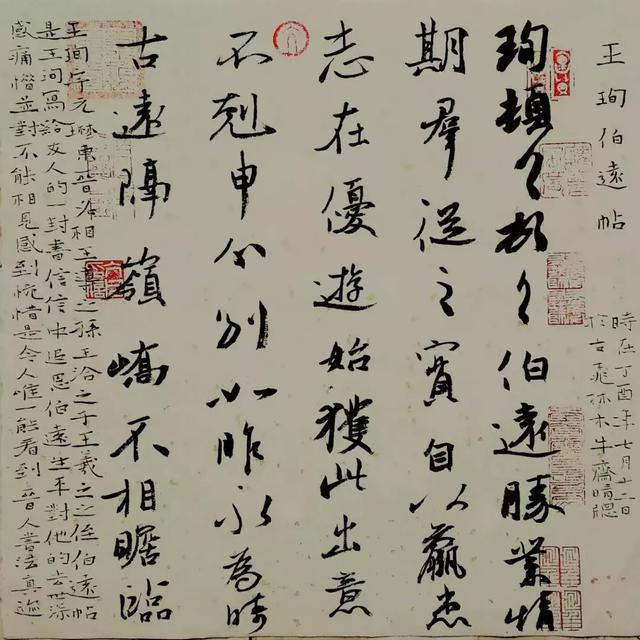 王珣伯遠帖
時在丁酉年七月上二日
珣頓首頓首伯遠勝業情
期羣從之寶自以羸患
志在優遊始獲此出意
不剋申分別如昨永為疇
古遠隔嶺嶠不相瞻臨
王珣字元琳東晉丞相王導之孫王洽之子王羲之之侄伯遠帖
是王珣寫給友人的一封書信信中追思伯遠生平對他的去世深
感痛惜並對不能相見感到惋惜是今人唯一能看到晉人書法真迹